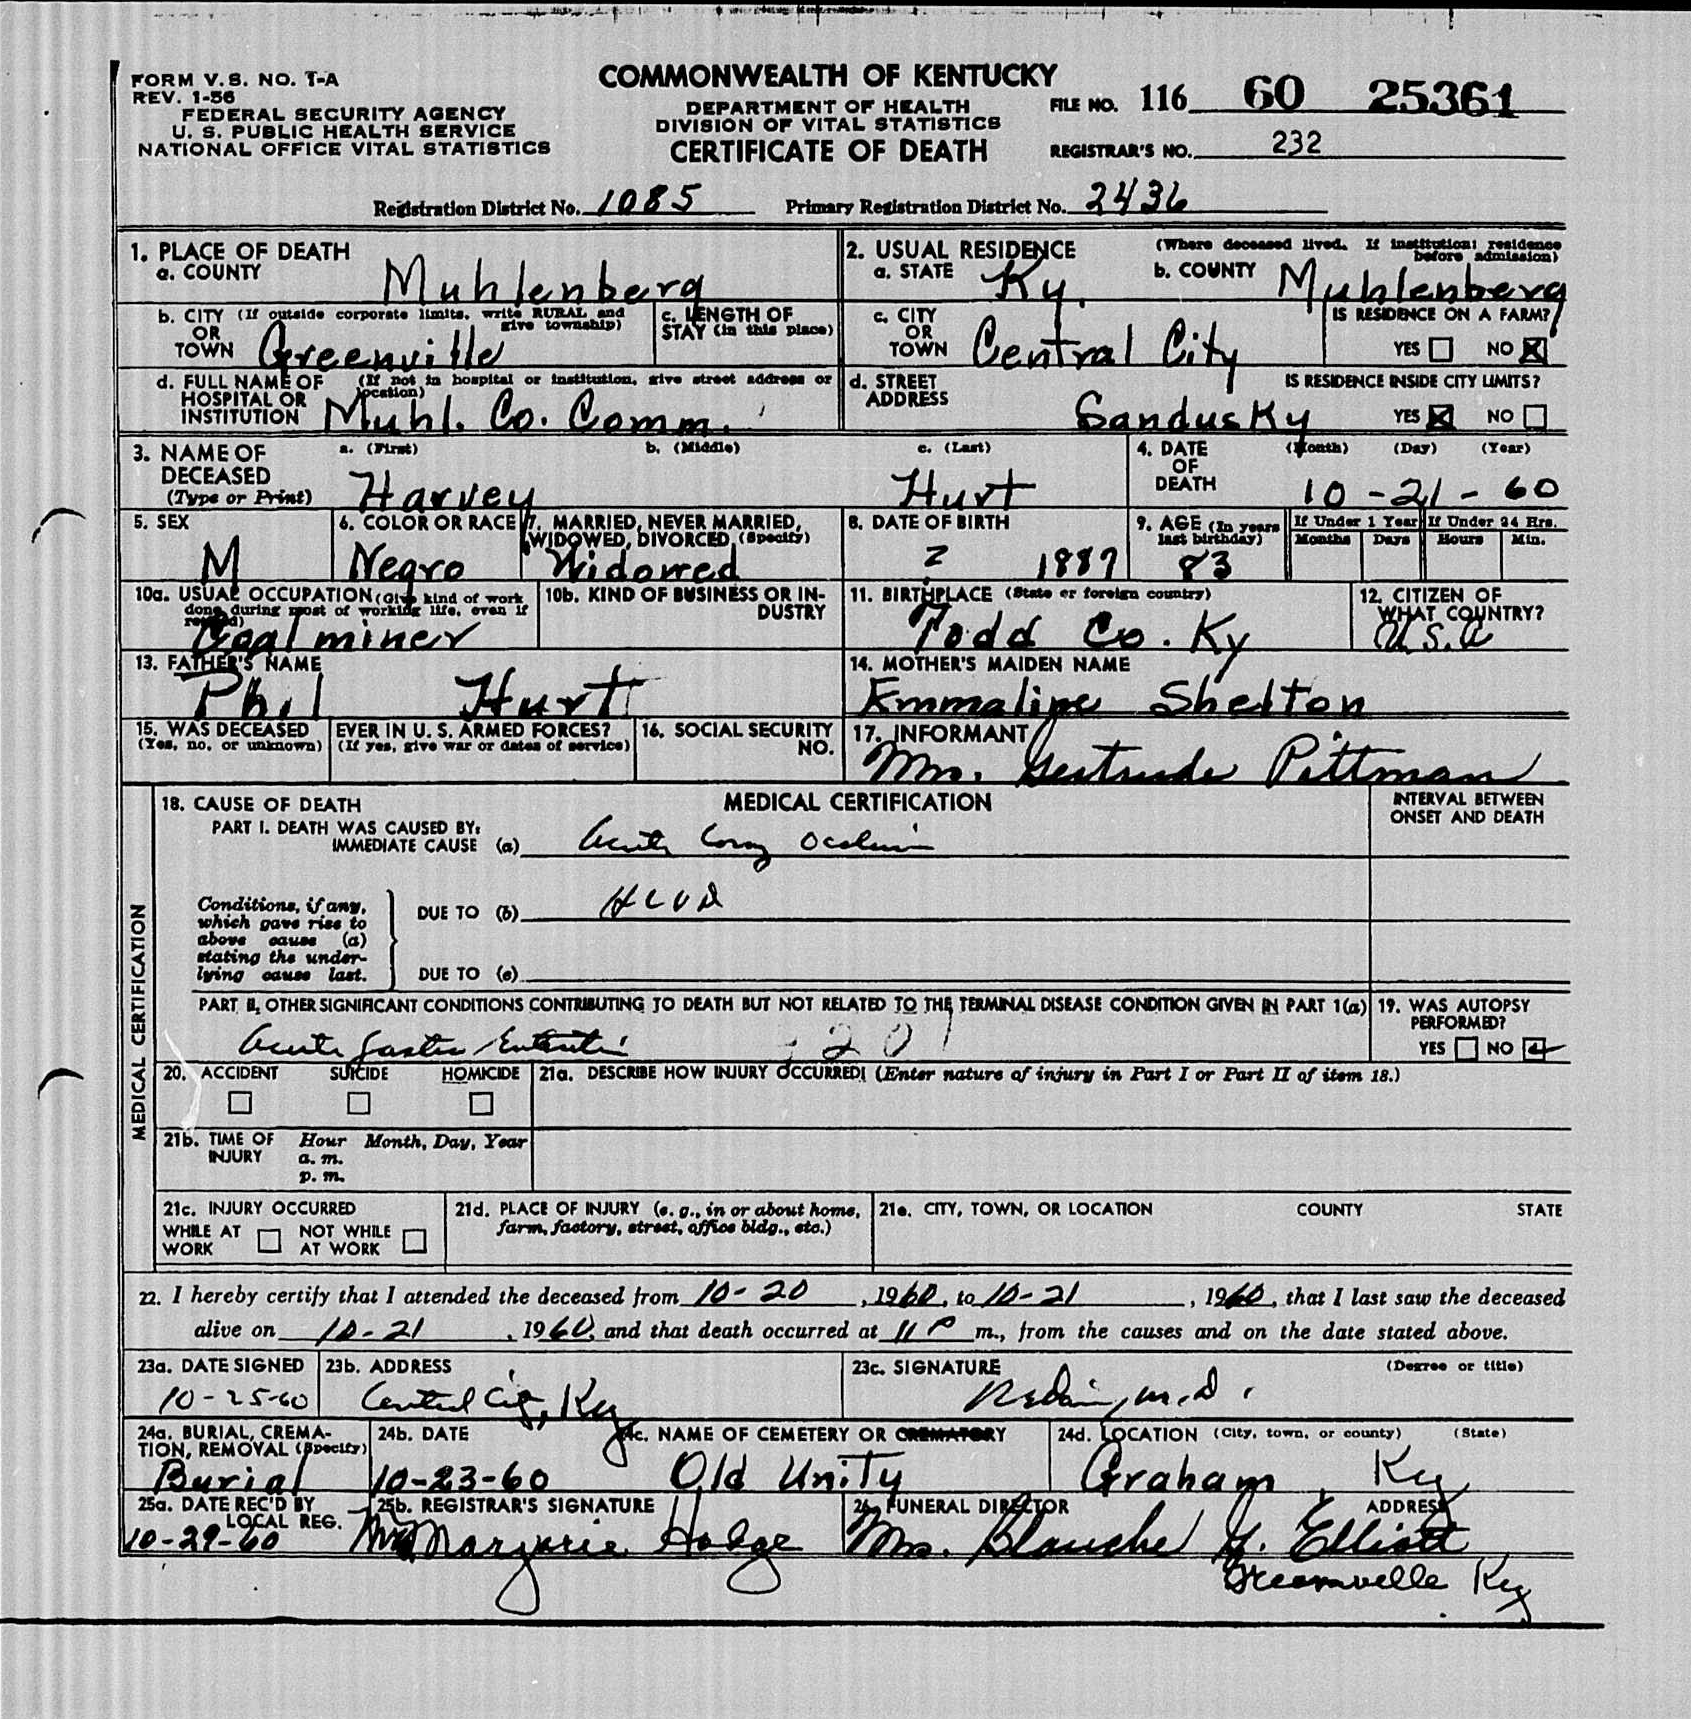 FORM V. S. NO. 1-A
REV. 1-56
FEDERAL SECURITY AGENCY
U. S. PUBLIC HEALTH SERVICE
NATIONAL OFFICE VITAL STATISTICS
COMMONWEALTH OF KENTUCKY
DEPARTMENT OF HEALTH
DIVISION OF VITAL STATISTICS
CERTIFICATE OF DEATH
FILE NO. 116 60 25361
REGISTRAR'S NO. 232
Registration District No. 1085 Primary Registration District No. 2436
1. PLACE OF DEATH
a. COUNTY Muhlenberg
2. USUAL RESIDENCE (Where deceased lived. If institution: residence before admission)
a. STATE Ky. b. COUNTY Muhlenberg
b. CITY (If outside corporate limits, write RURAL and give township)
OR
TOWN Greenville
c. LENGTH OF
STAY (in this place)
c. CITY
OR
TOWN Central City
IS RESIDENCE ON A FARM?
YES NO X
d. FULL NAME OF (If not in hospital or institution, give street address or location)
HOSPITAL OR
INSTITUTION Muhl. Co. Comm.
d. STREET
ADDRESS Sandusky
IS RESIDENCE INSIDE CITY LIMITS?
YES X NO
3. NAME OF
DECEASED
(Type or Print)
a. (First) b. (Middle) c. (Last)
Harvey Hurt
4. DATE
OF
DEATH
(Month) (Day) (Year)
10-21-60
5. SEX
M
6. COLOR OR RACE
Negro
7. MARRIED, NEVER MARRIED,
WIDOWED, DIVORCED (Specify)
Widowed
8. DATE OF BIRTH
? 1887
9. AGE (In years
last birthday)
83
If Under 1 Year If Under 24 Hrs.
Months Days Hours Min.
10a. USUAL OCCUPATION (Give kind of work
done during most of working life, even if
retired)
Coal miner
10b. KIND OF BUSINESS OR IN-
DUSTRY
11. BIRTHPLACE (State or foreign country)
Todd Co. Ky
12. CITIZEN OF
WHAT COUNTRY?
U.S.A
13. FATHER'S NAME
Phil Hurt
14. MOTHER'S MAIDEN NAME
Emmaline Shelton
15. WAS DECEASED EVER IN U. S. ARMED FORCES?
(Yes, no, or unknown) (If yes, give war or dates of service)
16. SOCIAL SECURITY
NO.
17. INFORMANT
Mrs. Gertrude Pittman
MEDICAL CERTIFICATION
18. CAUSE OF DEATH
MEDICAL CERTIFICATION
INTERVAL BETWEEN
ONSET AND DEATH
PART I. DEATH WAS CAUSED BY:
IMMEDIATE CAUSE (a) Acute
Conditions, if any,
which gave rise to
above cause (a)
stating the under-
lying cause last.
DUE TO (b) HCVD
DUE TO (c)
PART II. OTHER SIGNIFICANT CONDITIONS CONTRIBUTING TO DEATH BUT NOT RELATED TO THE TERMINAL DISEASE CONDITION GIVEN IN PART 1(a)
Acute Gastro
19. WAS AUTOPSY
PERFORMED?
YES NO
20. ACCIDENT SUICIDE HOMICIDE
21a. DESCRIBE HOW INJURY OCCURRED: (Enter nature of injury in Part I or Part II of item 18.)
21b. TIME OF
INJURY
Hour Month, Day, Year
a. m.
p. m.
21c. INJURY OCCURRED
WHILE AT
WORK
NOT WHILE
AT WORK
21d. PLACE OF INJURY (e. g., in or about home,
farm, factory, street, office bldg., etc.)
21e. CITY, TOWN, OR LOCATION COUNTY STATE
22. I hereby certify that I attended the deceased from 10-20, 1960, to 10-21, 1960, that I last saw the deceased
alive on 10-21, 1960, and that death occurred at 11 P m., from the causes and on the date stated above.
23a. DATE SIGNED
10-25-60
23b. ADDRESS
Central City, Ky
23c. SIGNATURE (Degree or title)
M.D.
24a. BURIAL, CREMA-
TION, REMOVAL (Specify)
Burial
24b. DATE
10-23-60
24c. NAME OF CEMETERY OR CREMATORY
Old Unity
24d. LOCATION (City, town, or county) (State)
Graham, Ky
25a. DATE REC'D BY
LOCAL REG.
10-29-60
25b. REGISTRAR'S SIGNATURE
Mrs Marjorie Hodge
26. FUNERAL DIRECTOR ADDRESS
Mrs. Blanche Y. Elliott
Greenville Ky